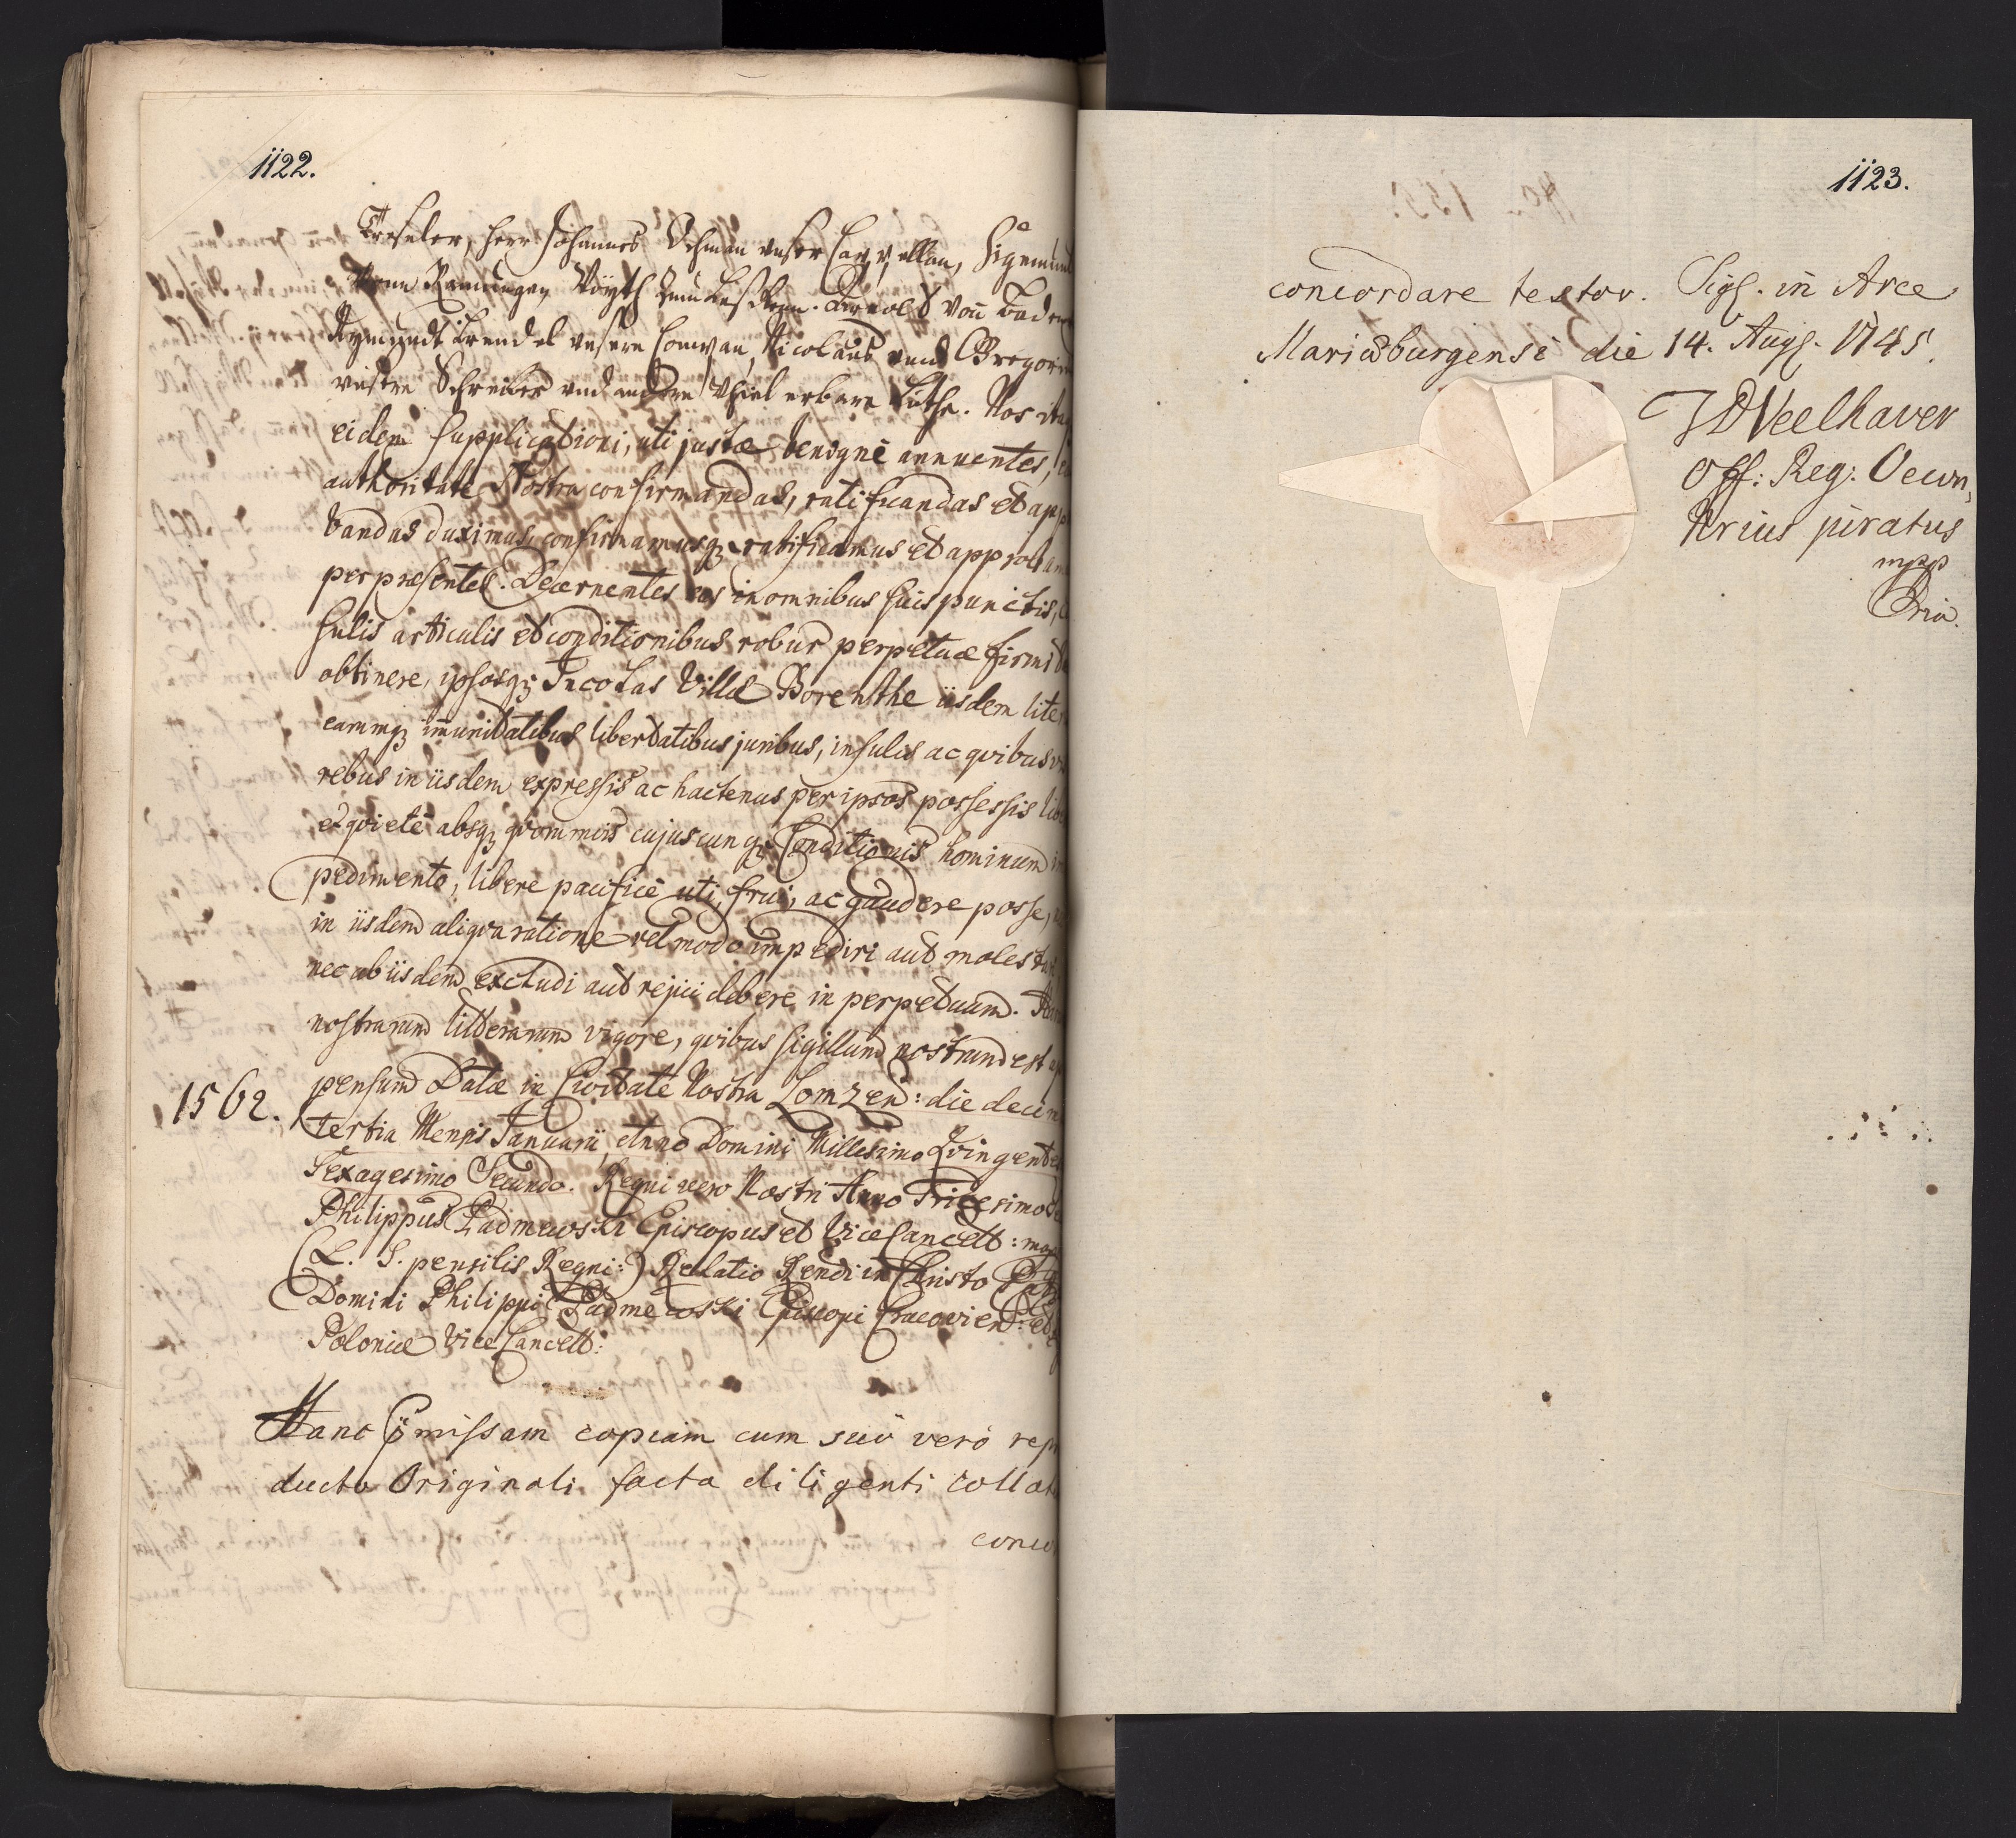 1122.
Treseler, Herr Johannes Ochman unser Cappellan, Sigemund
Arnold von Baden
Reymundt Trendel unsere Compan, Nicolaus und Gregori
unsere Schreiber und andere Vhiel erbare Luthe. Nos ita
eidem supplicationi, uti justae benigné annuentes,
authoritate Nostra confirmandas, ratificandas et ap
bandas duximus, confirmamusq ratificamus et approbam
per praesentes. Decernentes eas in omnibus suis punctis, C
sulis articulis et conditionibus robur perpetuae firmita
obtinere, ipsosq Incolas Villae Borenthe iisdem lite
earumq immunitatibus libertatibus juribus, insulis ac qvibusv
rebus in iisdem expressis ac hactenus per ipsos possessis lib
et qvieté absq qvommis cujuscunq Conditionis hominum im
pedimento, libere pacificé uti, frui, ac gaudere posse,
in iisdem aliqva ratione vel modo impediri aut molesta
nec ab iisdem excludi aut rejici debere in perpetuum. Har
nostrarum litterarum vigore, qvibus sigillum nostrum est ap
1562. pensum Datae in Civitate Nostra Lomzen: die decim
tertia Mensis Januarii, Anno Domini Millesimo Qvingentes
Sexagesimo Secundo. Regni vero Nostri Anno Tricesimo
Philippus Padniewski Episcopus et Vice Cancell: mp
(L. S. pensilis Regni:) Relatio Rendi in Christo Pat
Domini Philippi Padniewski Episcopi Cracovien: et
Poloniae Vice Cancell:
Hanc p̈missam copiam cum suo vero rep
ducto Originali facta diligenti collat
conco
1123.
concordare testor. Sigl. in Arce
Mariaeburgensi die 14. Augs. 1745.
JDVeelhaver
Off: Reg: Oecon,
Arius juratus
mpp